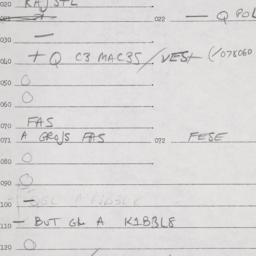 020 RAJSTL
022 — Q POL
030 —
040 + Q C3 MAC35/VEST (/078060
050 O
060 O
070 FAS
071 A GROJS FAS 072 FESE
080 O
090 O
100 —
110 — BUT GL A K1B3L8
120 O